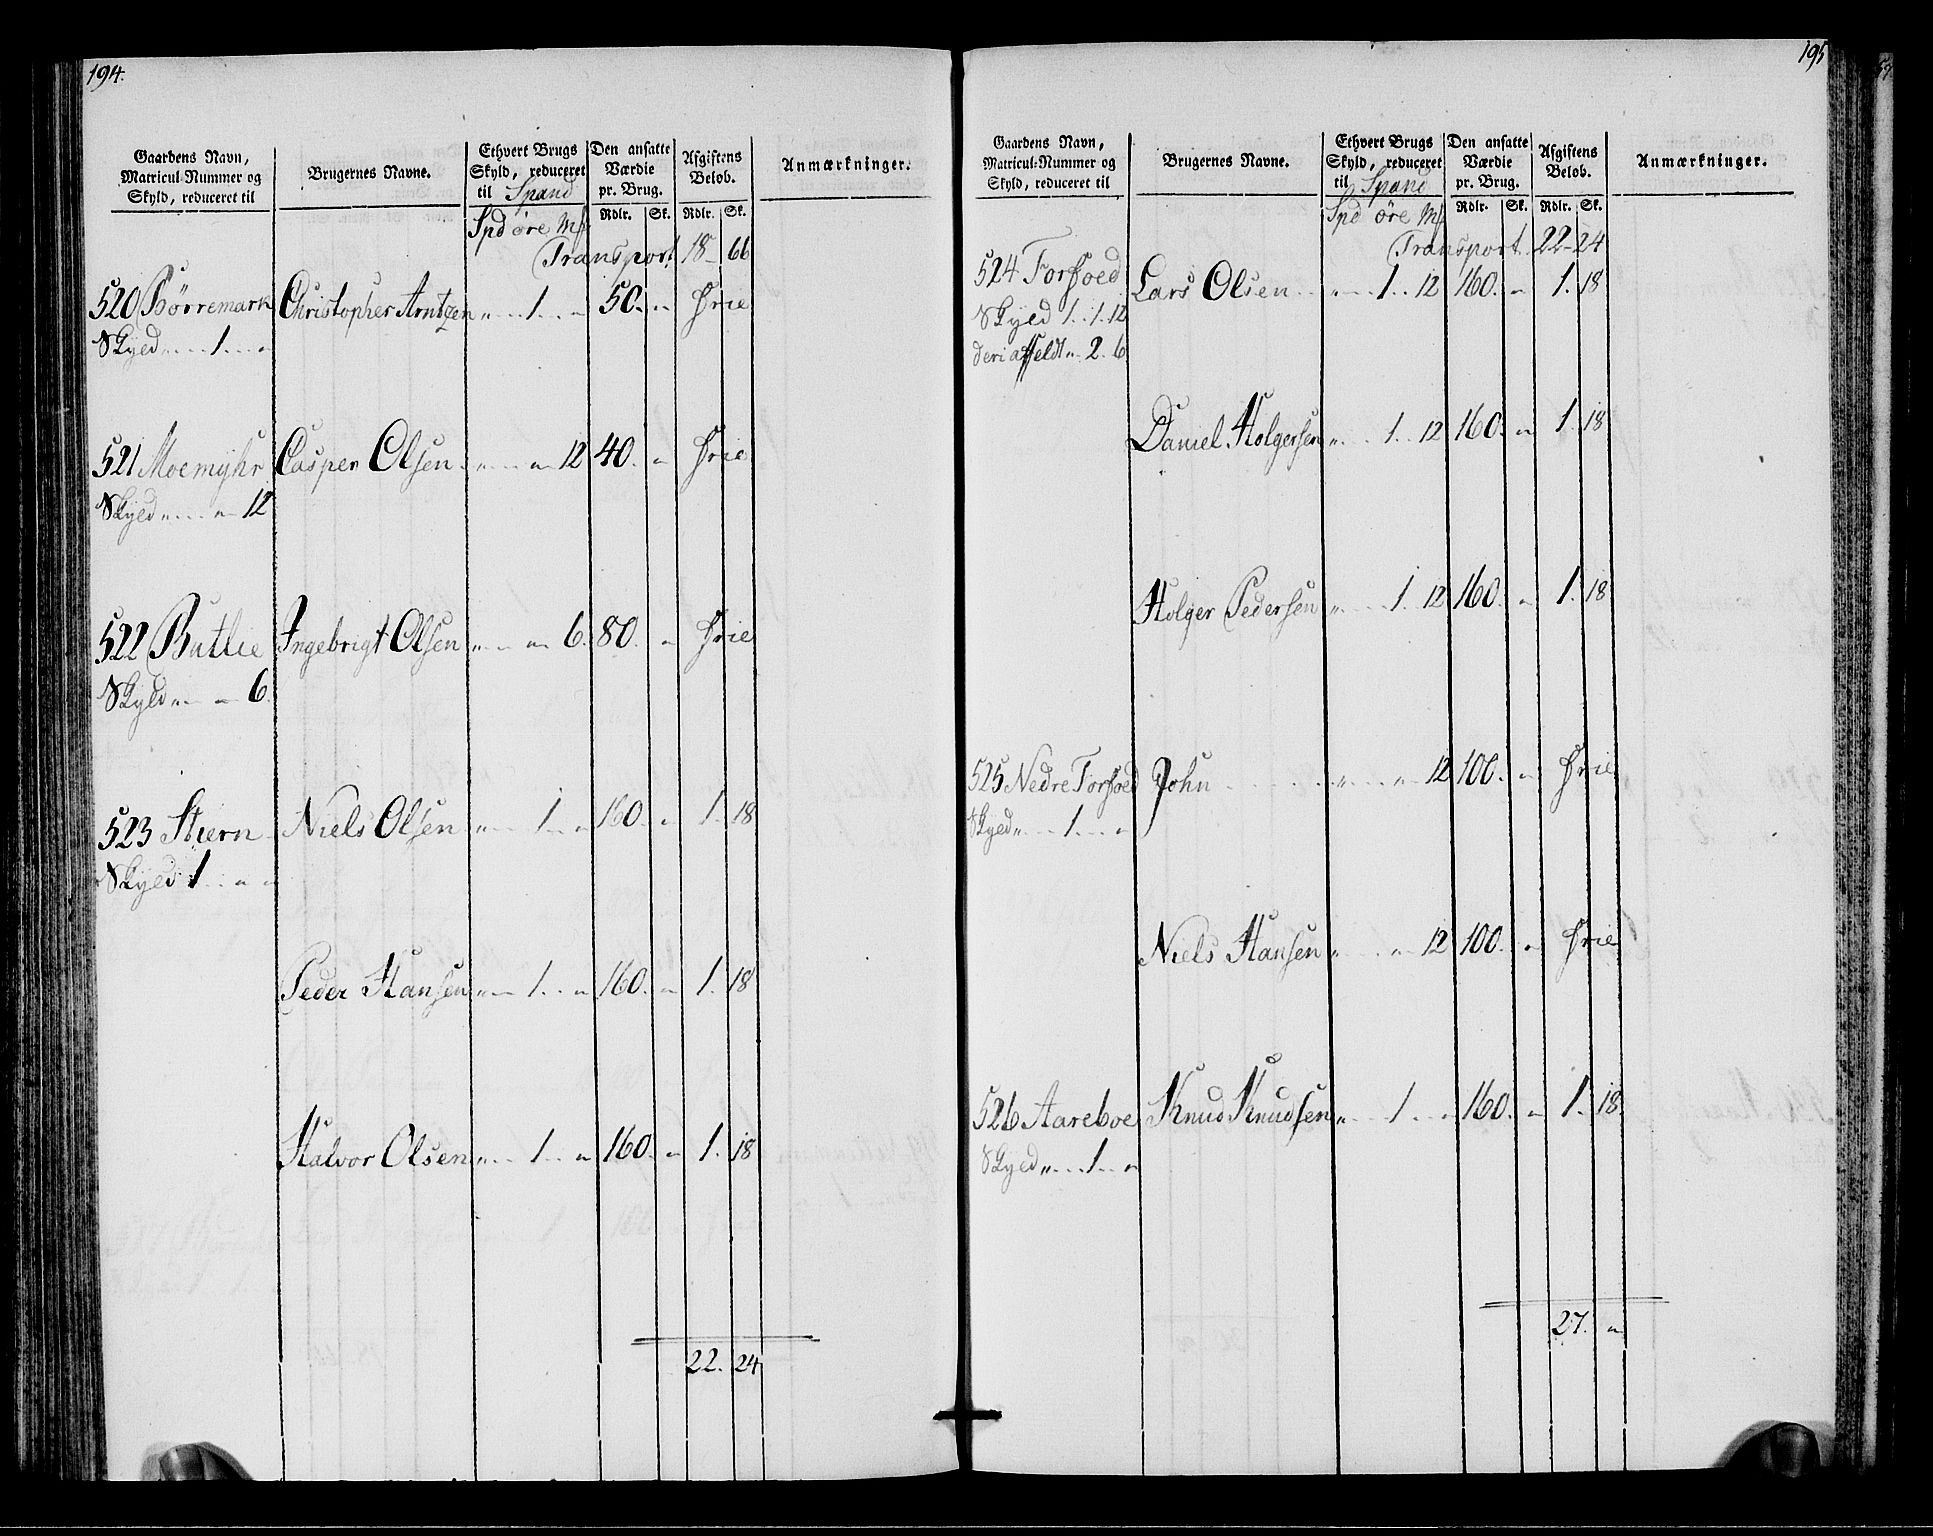 194.
Gaardens Navn, Matricul-Nummer og Skyld, reduceret til
Brugernes Navne.
Ethvert Brugs Skyld, reduceret til Spand
Den ansatte Værdie pr. Brug.
Afgiftens Beløb.
Anmærkninger.
Rdlr. Sk. Rdlr. Sk.
Spd øre Mf
Transport 18 - 66
520 Börremark Christopher Arntzen „ - - 1 - - „ 50. „ Frie
Skyld „ - - 1 - - „
521 Moemyhr Casper Olsen „ - - „ - 12 40. „ Frie
Skyld „ - - „ - 12
522 Butlie Ingebrigt Olsen „ - „ - 6. 80. „ Frie
Skyld „ - „ - 6.
523 Stiern Niels Olsen „ - - 1 - „ 160. „ 1. 18
Skyld 1 - „ - „
Peder Hansen „ - - 1 - - „ 160. „ 1. 18
Halvor Olsen „ - - 1 - - „ 160. „ 1. 18
22. 24
195
Gaardens Navn, Matricul-Nummer og Skyld, reduceret til
Brugernes Navne.
Ethvert Brugs Skyld, reduceret til Spand
Den ansatte Værdie pr. Brug.
Afgiftens Beløb.
Anmærkninger.
Rdlr. Sk. Rdlr. Sk.
Spd øre Mf
Transport 22 - 24
524 Forfoed Lars Olsen „ - - 1 - - 12 160. „ 1. 18
Skyld 1 - 1. 12
deri affeldt „ - 2. 6
Daniel Holgersen „ - - 1 - - 12 160. „ 1. 18
Holger Pedersen „ - - 1. 12 160. „ 1. 18
525 Nedre Forfoed John „ - - „ 12 100. „ Frie
Skyld „ - - 1 - - „
Niels Hansen „ - - „ - 12 100. „ Frie
526 Aareboe Knud Knudsen „ - - 1 - - „ 160. „ 1. 18
Skyld „ - - 1 - - „
27. „